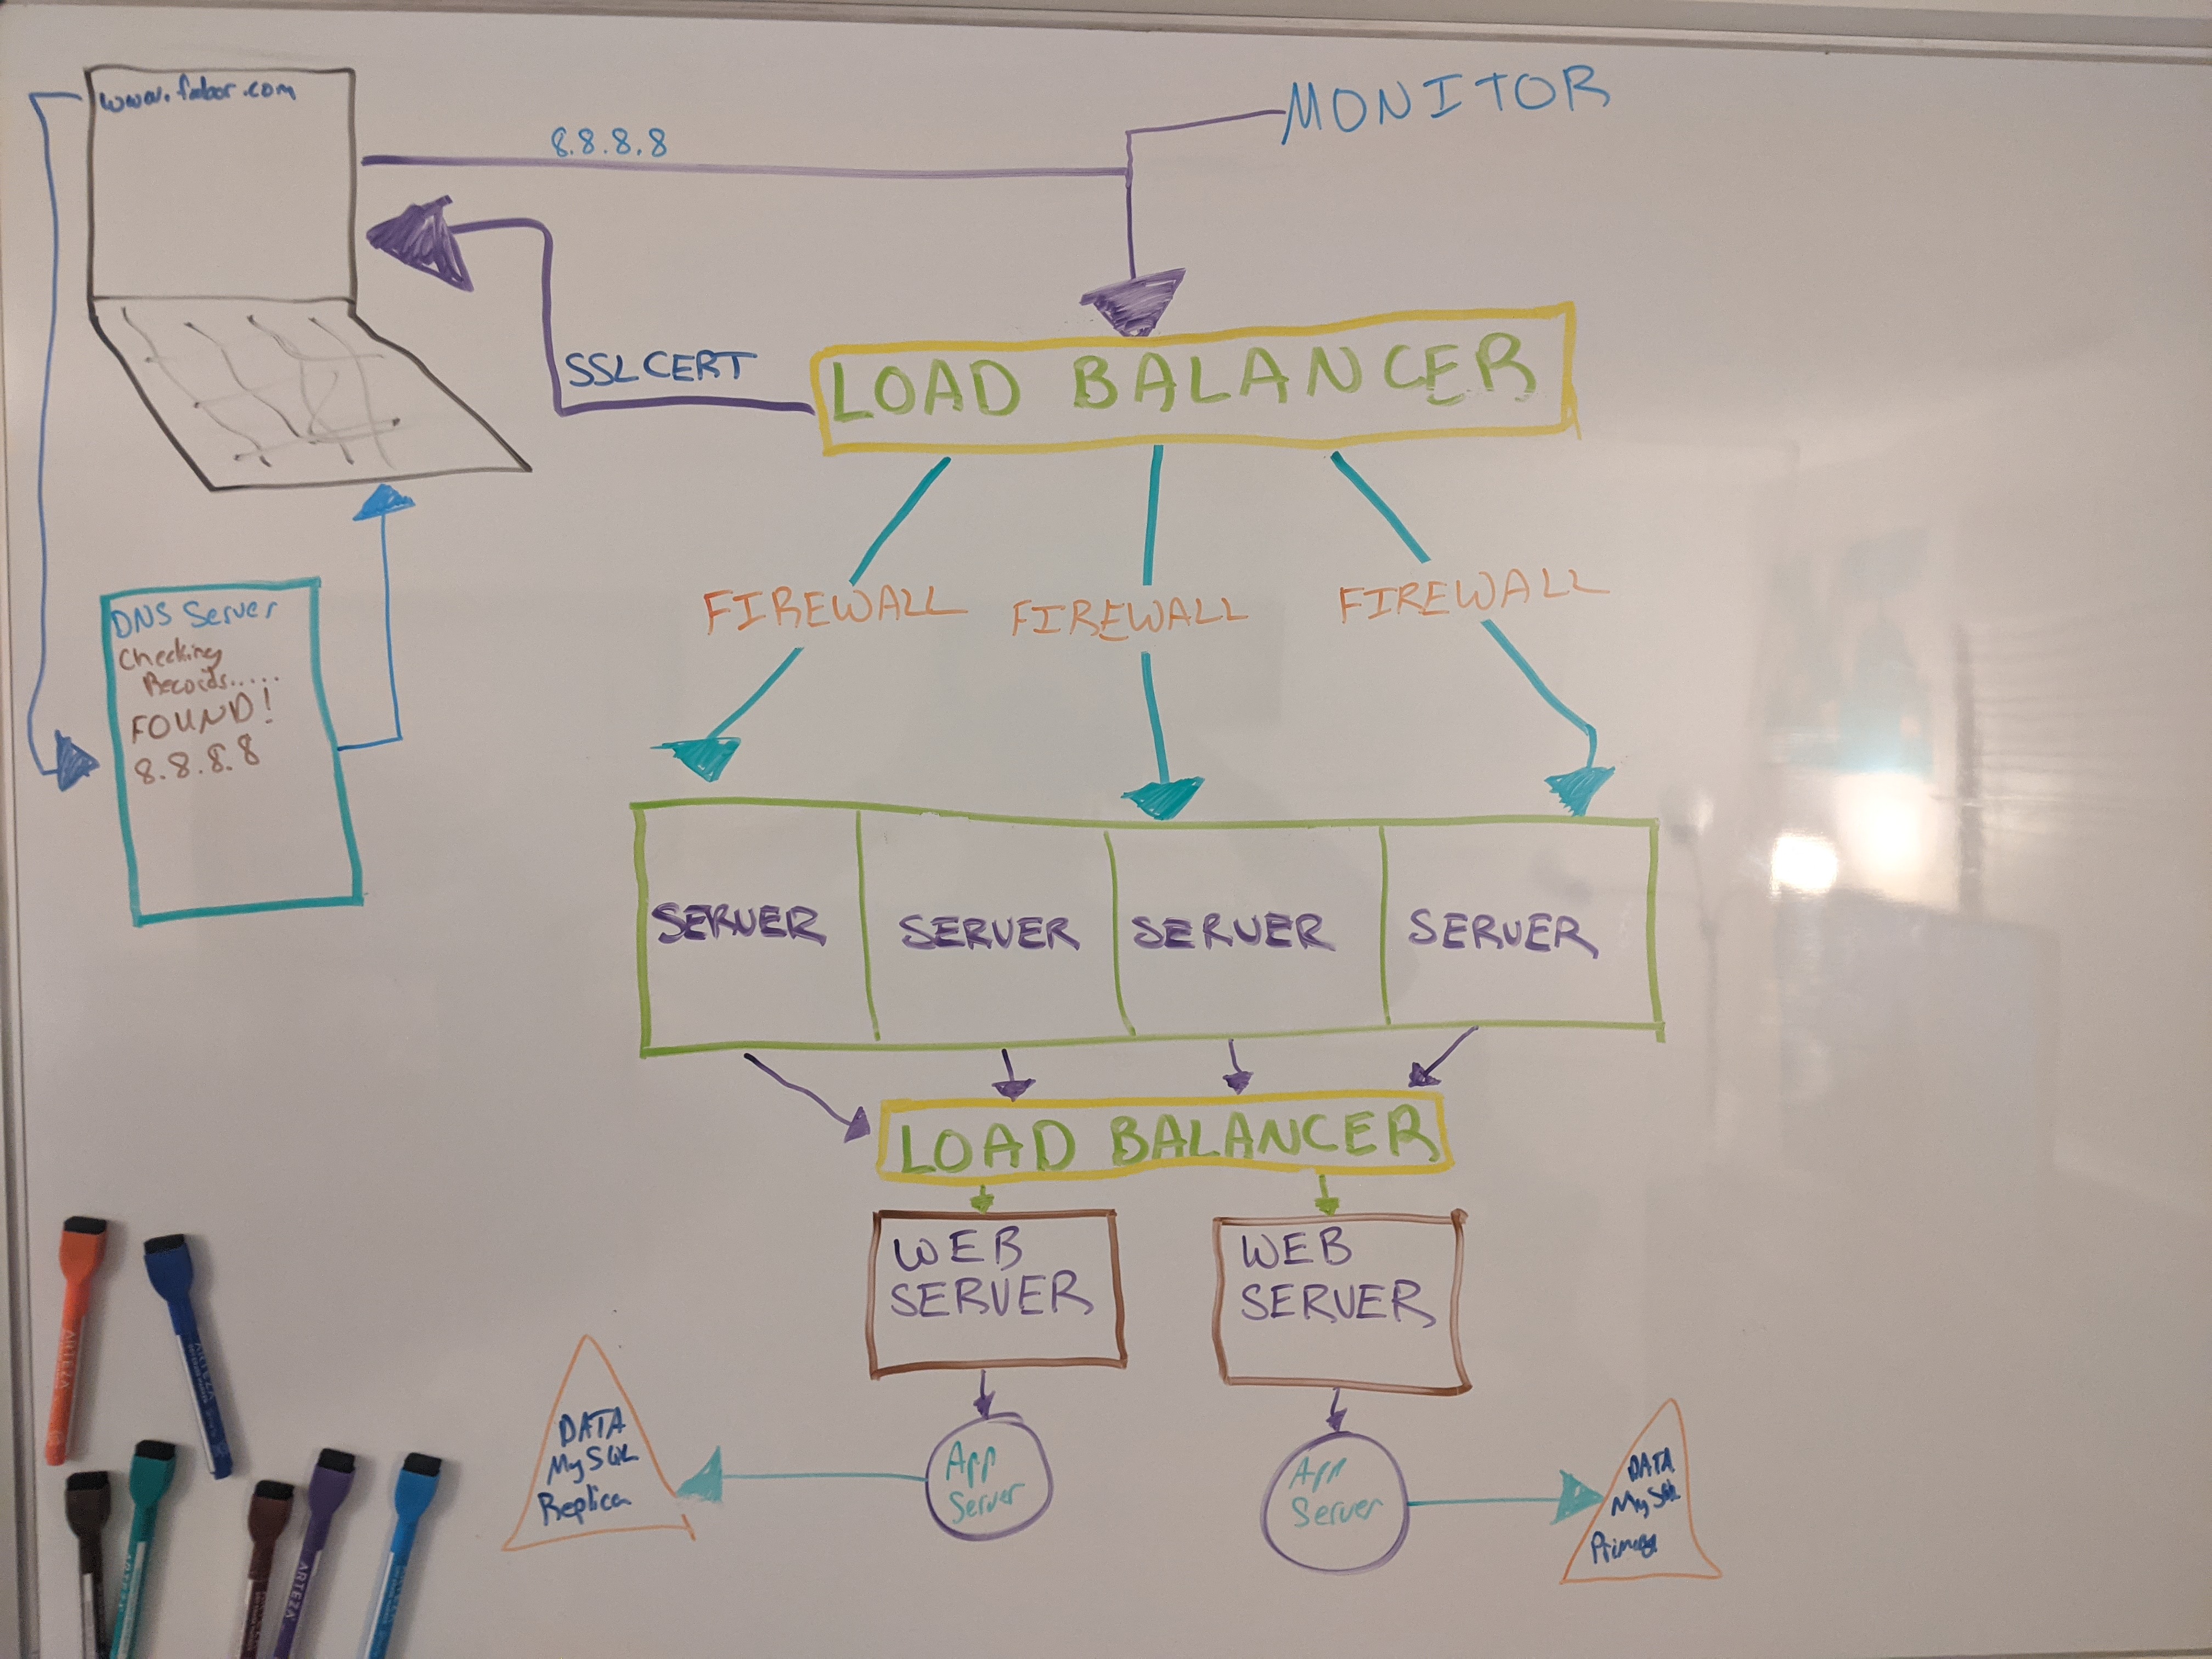 www.foobar.com
8.8.8.8
MONITOR
SSL CERT
LOAD BALANCER
FIREWALL
FIREWALL
FIREWALL
DNS Server
Checking
Records.....
FOUND!
8.8.8.8
SERVER
SERVER
SERVER
SERVER
LOAD BALANCER
WEB
SERVER
WEB
SERVER
DATA
MySQL
Replica
App
Server
App
Server
DATA
MySQL
ARTEZA
ARTEZA
ARTEZA
ARTEZA